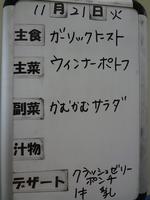 11月21日火
主食 ガーリックトースト
主菜 ウィンナーポトフ
副菜 かむかむサラダ
汁物
デザート クラッシュゼリー
ポンチ
牛乳